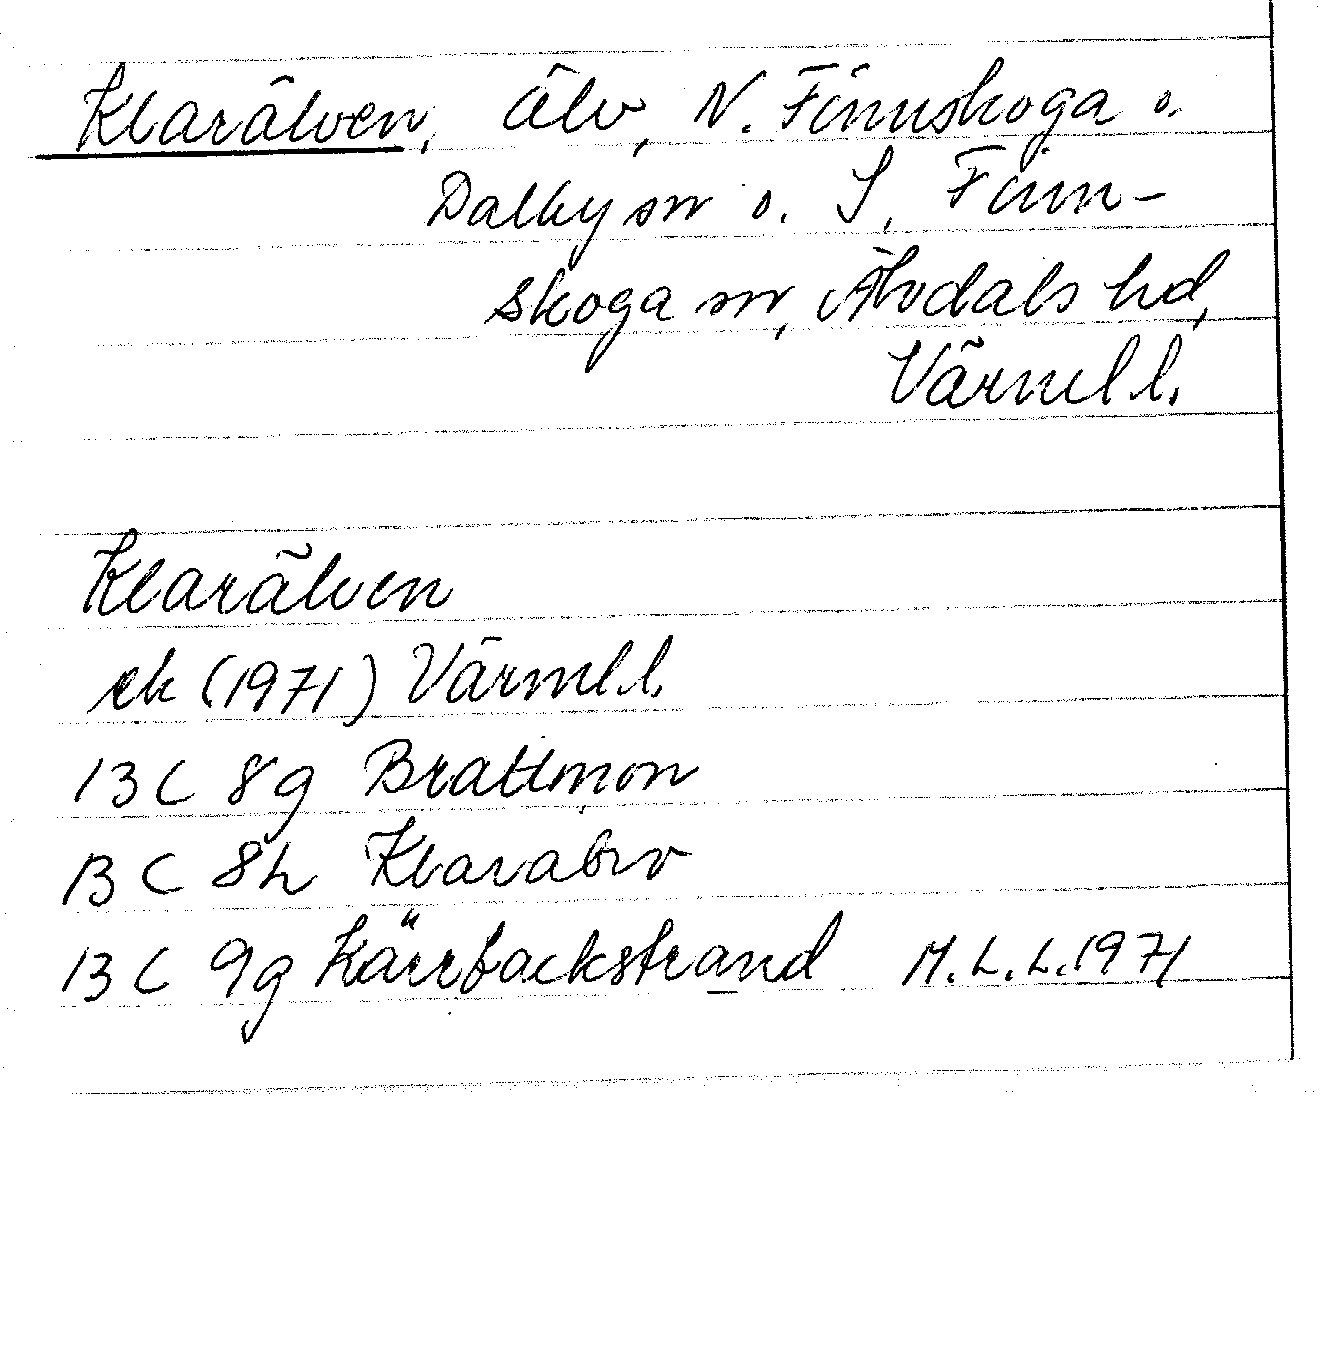 Klarälven, älv, N. Finnskoga o.
Dalby snr o. S. Finn-
skoga snr, Älvdals hd,
Värml l.
Klarälven
ek (1971) Värml l.
13 C 8g Brattmon
13 C 8h Klarabro
13 C 9g Kärrbackstrand M.L.L. 1971